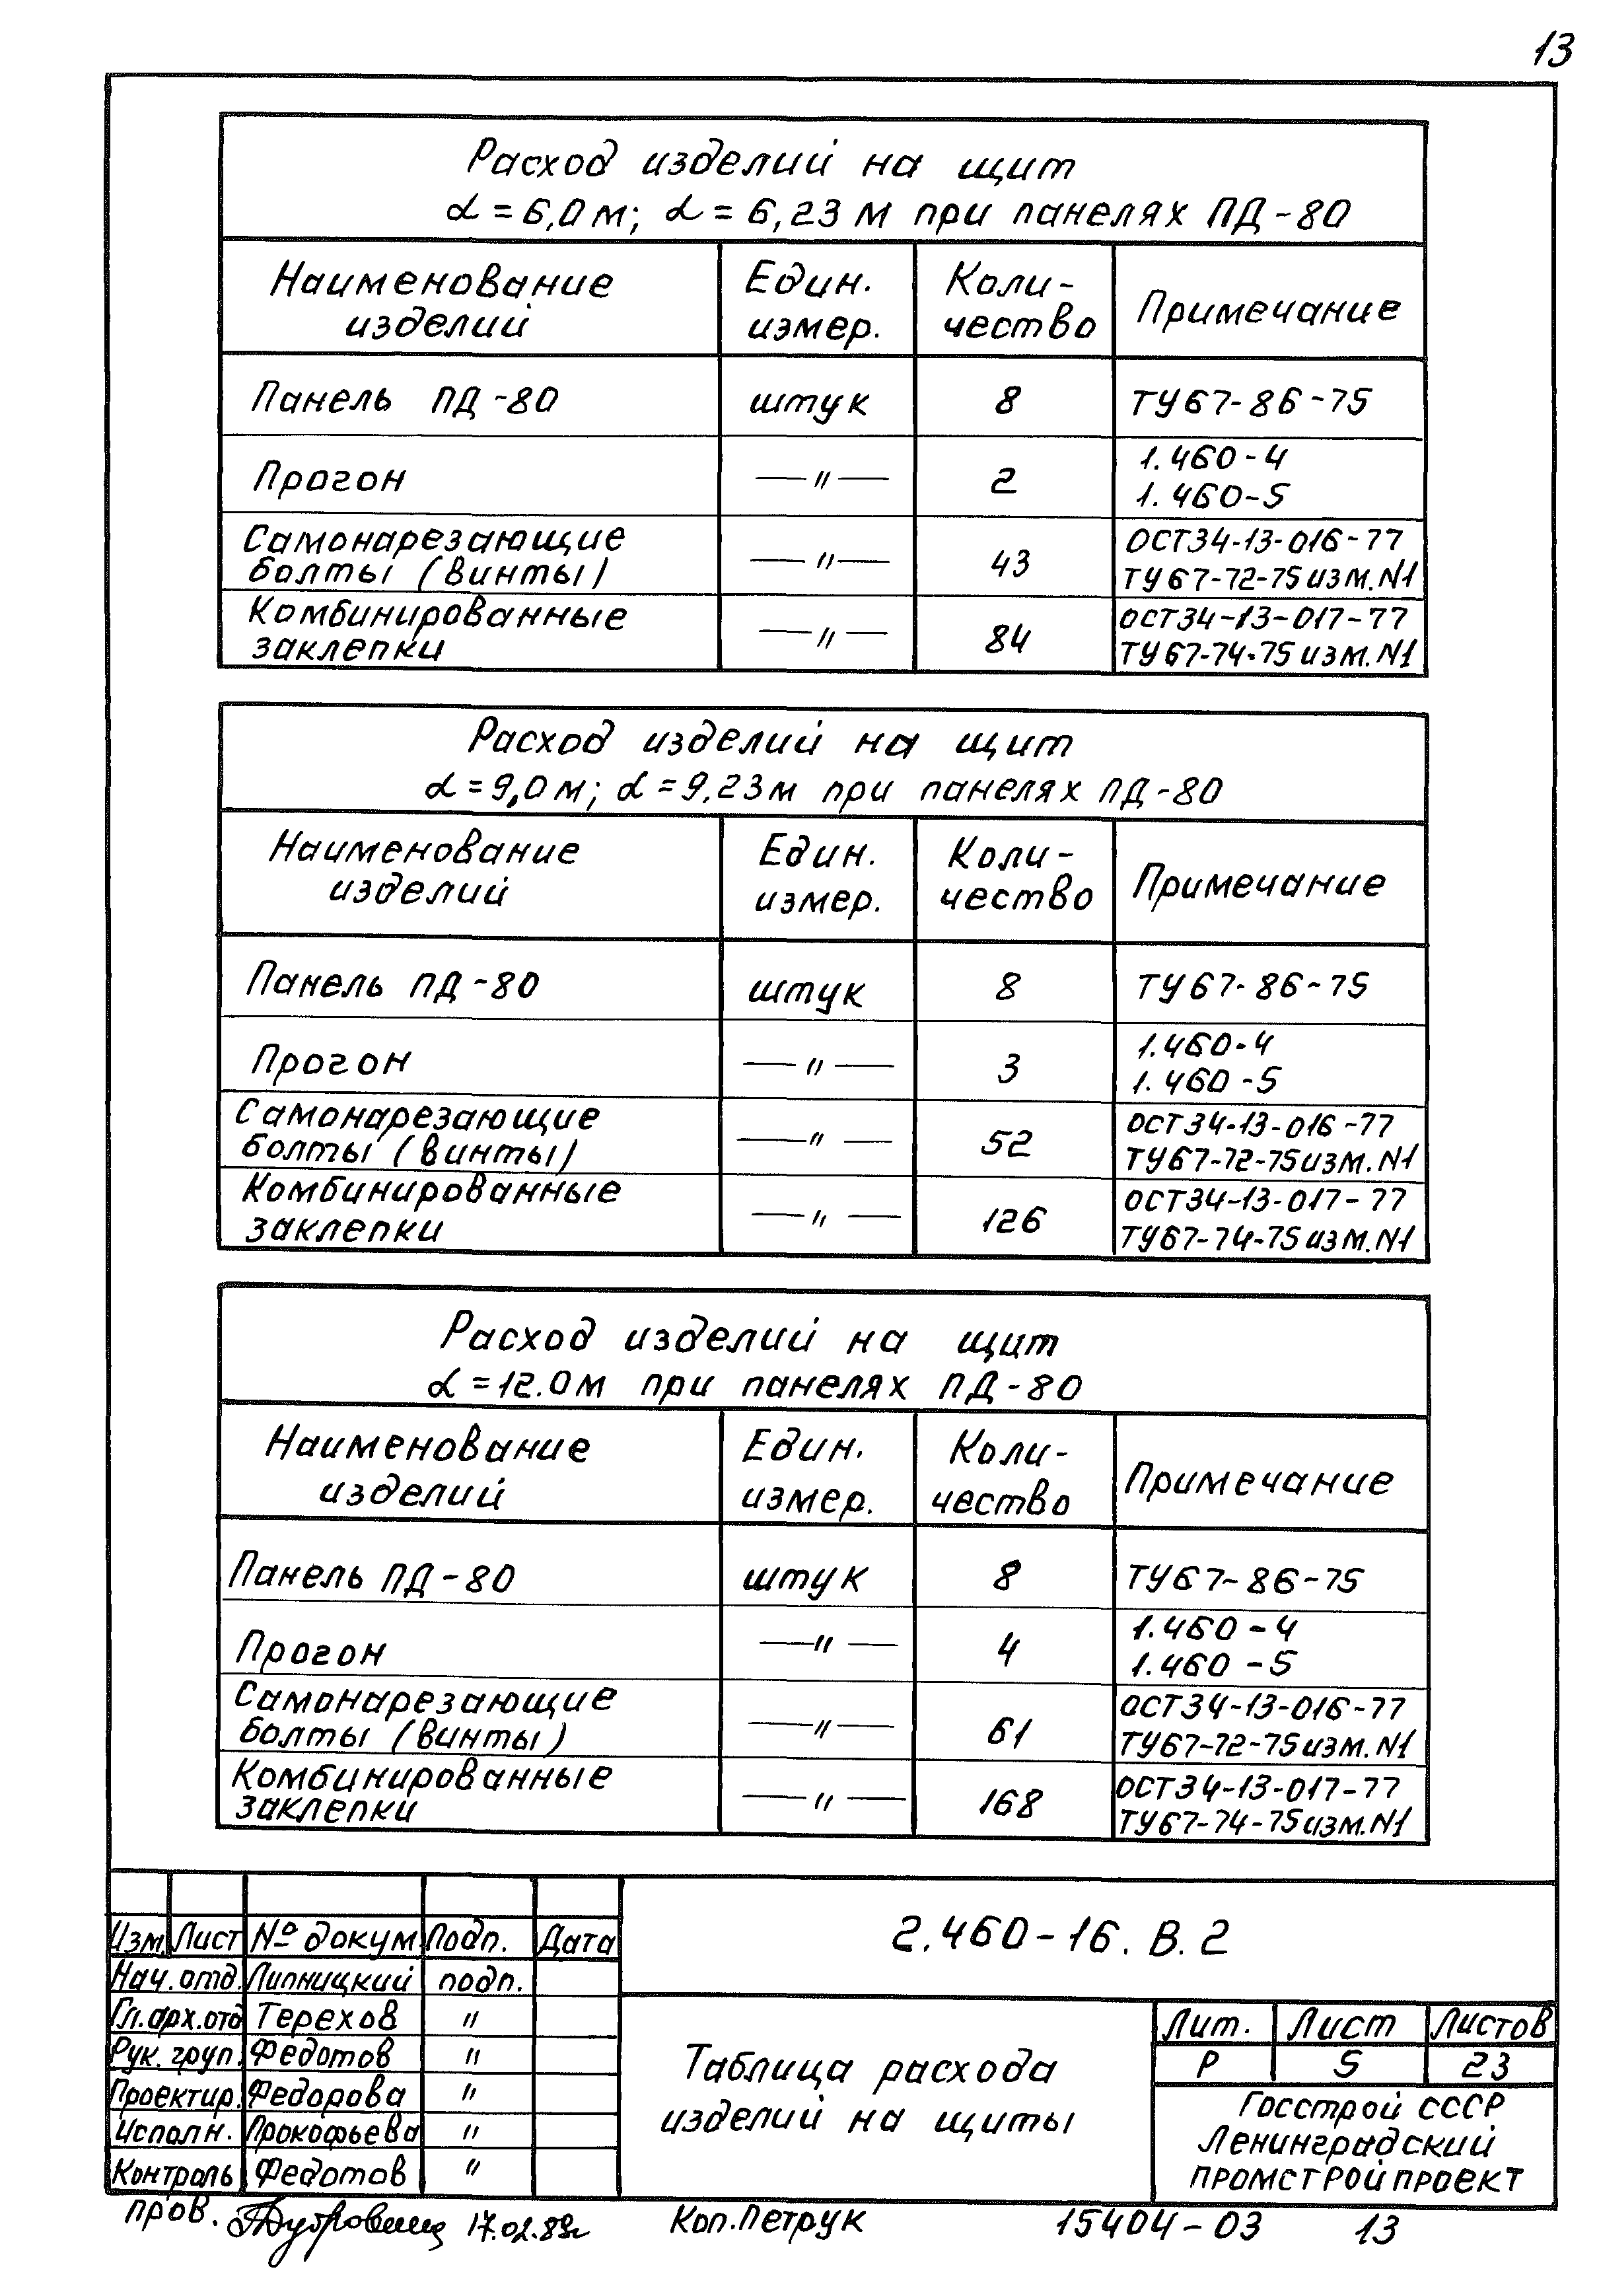 13
Расход изделий на щит
α = 6,0 м; α = 6,23 м при панелях ПД-80
Наименование изделий | Един. измер. | Коли-чество | Примечание
Панель ПД-80 | штук | 8 | ТУ67-86-75
Прогон | —"— | 2 | 1.460-4
1.460-5
Самонарезающие | —"— | 43 | ОСТ34-13-016-77
болты (винты) | ТУ67-72-75 изм.N1
Комбинированные | —"— | 84 | ОСТ34-13-017-77
заклепки | ТУ67-74-75 изм.N1
Расход изделий на щит
α = 9,0 м; α = 9,23 м при панелях ПД-80
Наименование изделий | Един. измер. | Коли-чество | Примечание
Панель ПД-80 | штук | 8 | ТУ67-86-75
Прогон | —"— | 3 | 1.460-4
1.460-5
Самонарезающие | —"— | 52 | ОСТ34-13-016-77
болты (винты) | ТУ67-72-75 изм.N1
Комбинированные | —"— | 126 | ОСТ34-13-017-77
заклепки | ТУ67-74-75 изм.N1
Расход изделий на щит
α = 12.0 м при панелях ПД-80
Наименование изделий | Един. измер. | Коли-чество | Примечание
Панель ПД-80 | штук | 8 | ТУ67-86-75
Прогон | —"— | 4 | 1.460-4
1.460-5
Самонарезающие | —"— | 61 | ОСТ34-13-016-77
болты (винты) | ТУ67-72-75 изм.N1
Комбинированные | —"— | 168 | ОСТ34-13-017-77
заклепки | ТУ67-74-75 изм.N1
Изм. | Лист | № докум | Подп. | Дата
Нач. отд. | Липницкий | подп.
Гл. арх. отд | Терехов | "
Рук. груп. | Федотов | "
Проектир. | Федорова | "
Исполн. | Прокофьева | "
Контроль | Федотов | "
2.460-16. В.2
Таблица расхода
изделий на щиты
Лит. | Лист | Листов
Р | 5 | 23
Госстрой СССР
Ленинградский
ПРОМСТРОЙПРОЕКТ
пров. 17.02.83г
Коп. Петрук
15404-03 13